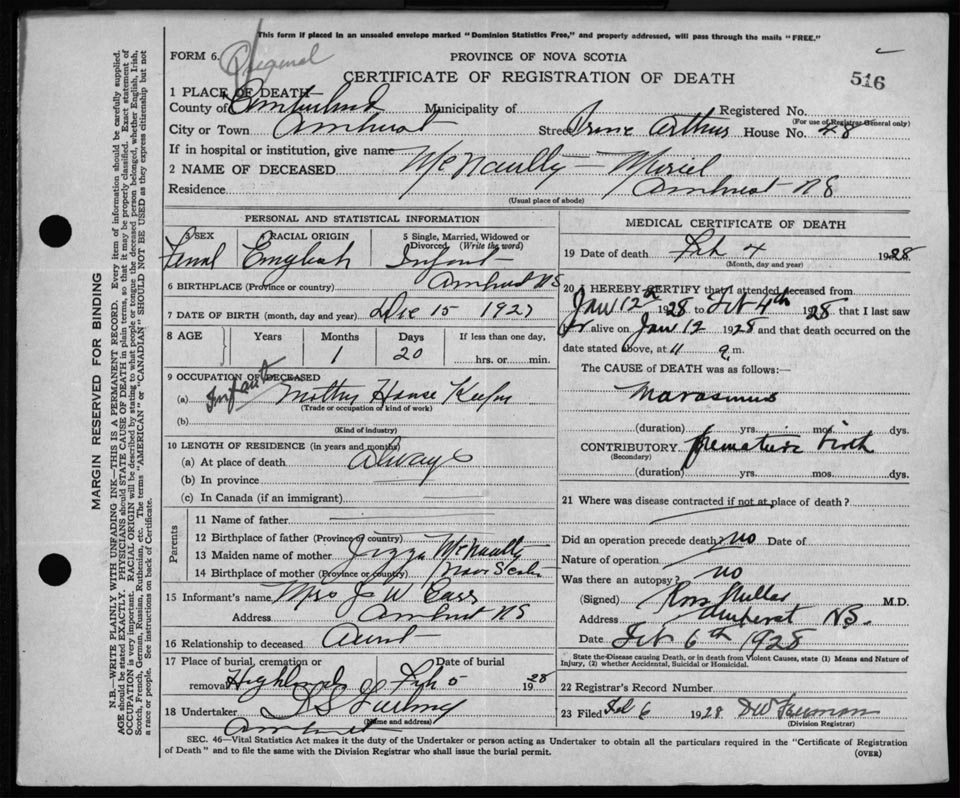 This form if placed in an unsealed envelope marked "Dominion Statistics Free," and properly addressed, will pass through the mails "FREE."
FORM 6.
PROVINCE OF NOVA SCOTIA
CERTIFICATE OF REGISTRATION OF DEATH
516
1 PLACE OF DEATH
County of Cumberland Municipality of Registered No.
(For use of Registrar General only)
City or Town Amherst Street Prince Arthur House No. 48
If in hospital or institution, give name
2 NAME OF DECEASED McNaully Muriel
Residence Amherst NS
(Usual place of abode)
PERSONAL AND STATISTICAL INFORMATION
3 SEX 4 RACIAL ORIGIN 5 Single, Married, Widowed or Divorced (Write the word)
Femal English Infant
6 BIRTHPLACE (Province or country) Amherst NS
7 DATE OF BIRTH (month, day and year) Dec 15 1927
8 AGE Years Months Days If less than one day,
1 20 hrs. or min.
9 OCCUPATION OF DECEASED
(a) Infant Mother House Keeper
(Trade or occupation or kind of work)
(b)
(Kind of industry)
10 LENGTH OF RESIDENCE (in years and months)
(a) At place of death Always
(b) In province
(c) In Canada (if an immigrant)
Parents
11 Name of father
12 Birthplace of father (Province or country)
13 Maiden name of mother McNaully
14 Birthplace of mother (Province or country) Nova Scotia
15 Informant's name Mrs J W
Address Amherst NS
16 Relationship to deceased Aunt
17 Place of burial, cremation or removal Highland Date of burial Feb 5 1928
18 Undertaker
(Name and address)
Amherst
MEDICAL CERTIFICATE OF DEATH
19 Date of death Feb 4 1928
(Month, day and year)
20 I HEREBY CERTIFY that I attended deceased from
Jan 12th 1928 to Feb 4th 1928 that I last saw
alive on Jan 12 1928 and that death occurred on
date stated above, at 11 m.
The CAUSE of DEATH was as follows:—
Marasmus
(duration) yrs. mos. dys.
CONTRIBUTORY premature birth
(Secondary)
(duration) yrs. mos. dys.
21 Where was disease contracted if not at place of death?
Did an operation precede death? no Date of
Nature of operation
Was there an autopsy? no
(Signed) Ross M.D.
Address Amherst NS.
Date Feb 6th 1928
State the Disease causing Death, or in death from Violent Causes, state (1) Means and Nature of Injury, (2) whether Accidental, Suicidal or Homicidal.
22 Registrar's Record Number
23 Filed Feb 6 1928
(Division Registrar)
SEC. 46—Vital Statistics Act makes it the duty of the Undertaker or person acting as Undertaker to obtain all the particulars required in the "Certificate of Registration
of Death" and to file the same with the Division Registrar who shall issue the burial permit.
(OVER)
MARGIN RESERVED FOR BINDING
N.B.—WRITE PLAINLY WITH UNFADING INK—THIS IS A PERMANENT RECORD. Every item of information should be carefully supplied.
AGE should be stated EXACTLY. PHYSICIANS should STATE CAUSE OF DEATH in plain terms, so that it may be properly classified. Exact statement of
OCCUPATION is very important. RACIAL ORIGIN will be described by stating to what people or tongue the deceased person belonged, whether English, Irish,
Scotch, French, German, Russian, Ruthenian, etc. The terms "AMERICAN" or "CANADIAN" SHOULD NOT BE USED as they express citizenship but not
a race or people. See instructions on back of Certificate.